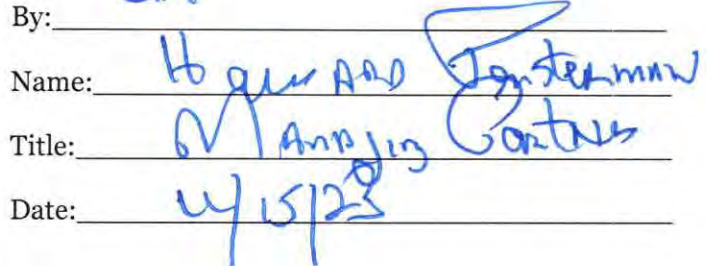 By:
Name: Howard Fensterman
Title: Managing Partner
Date: